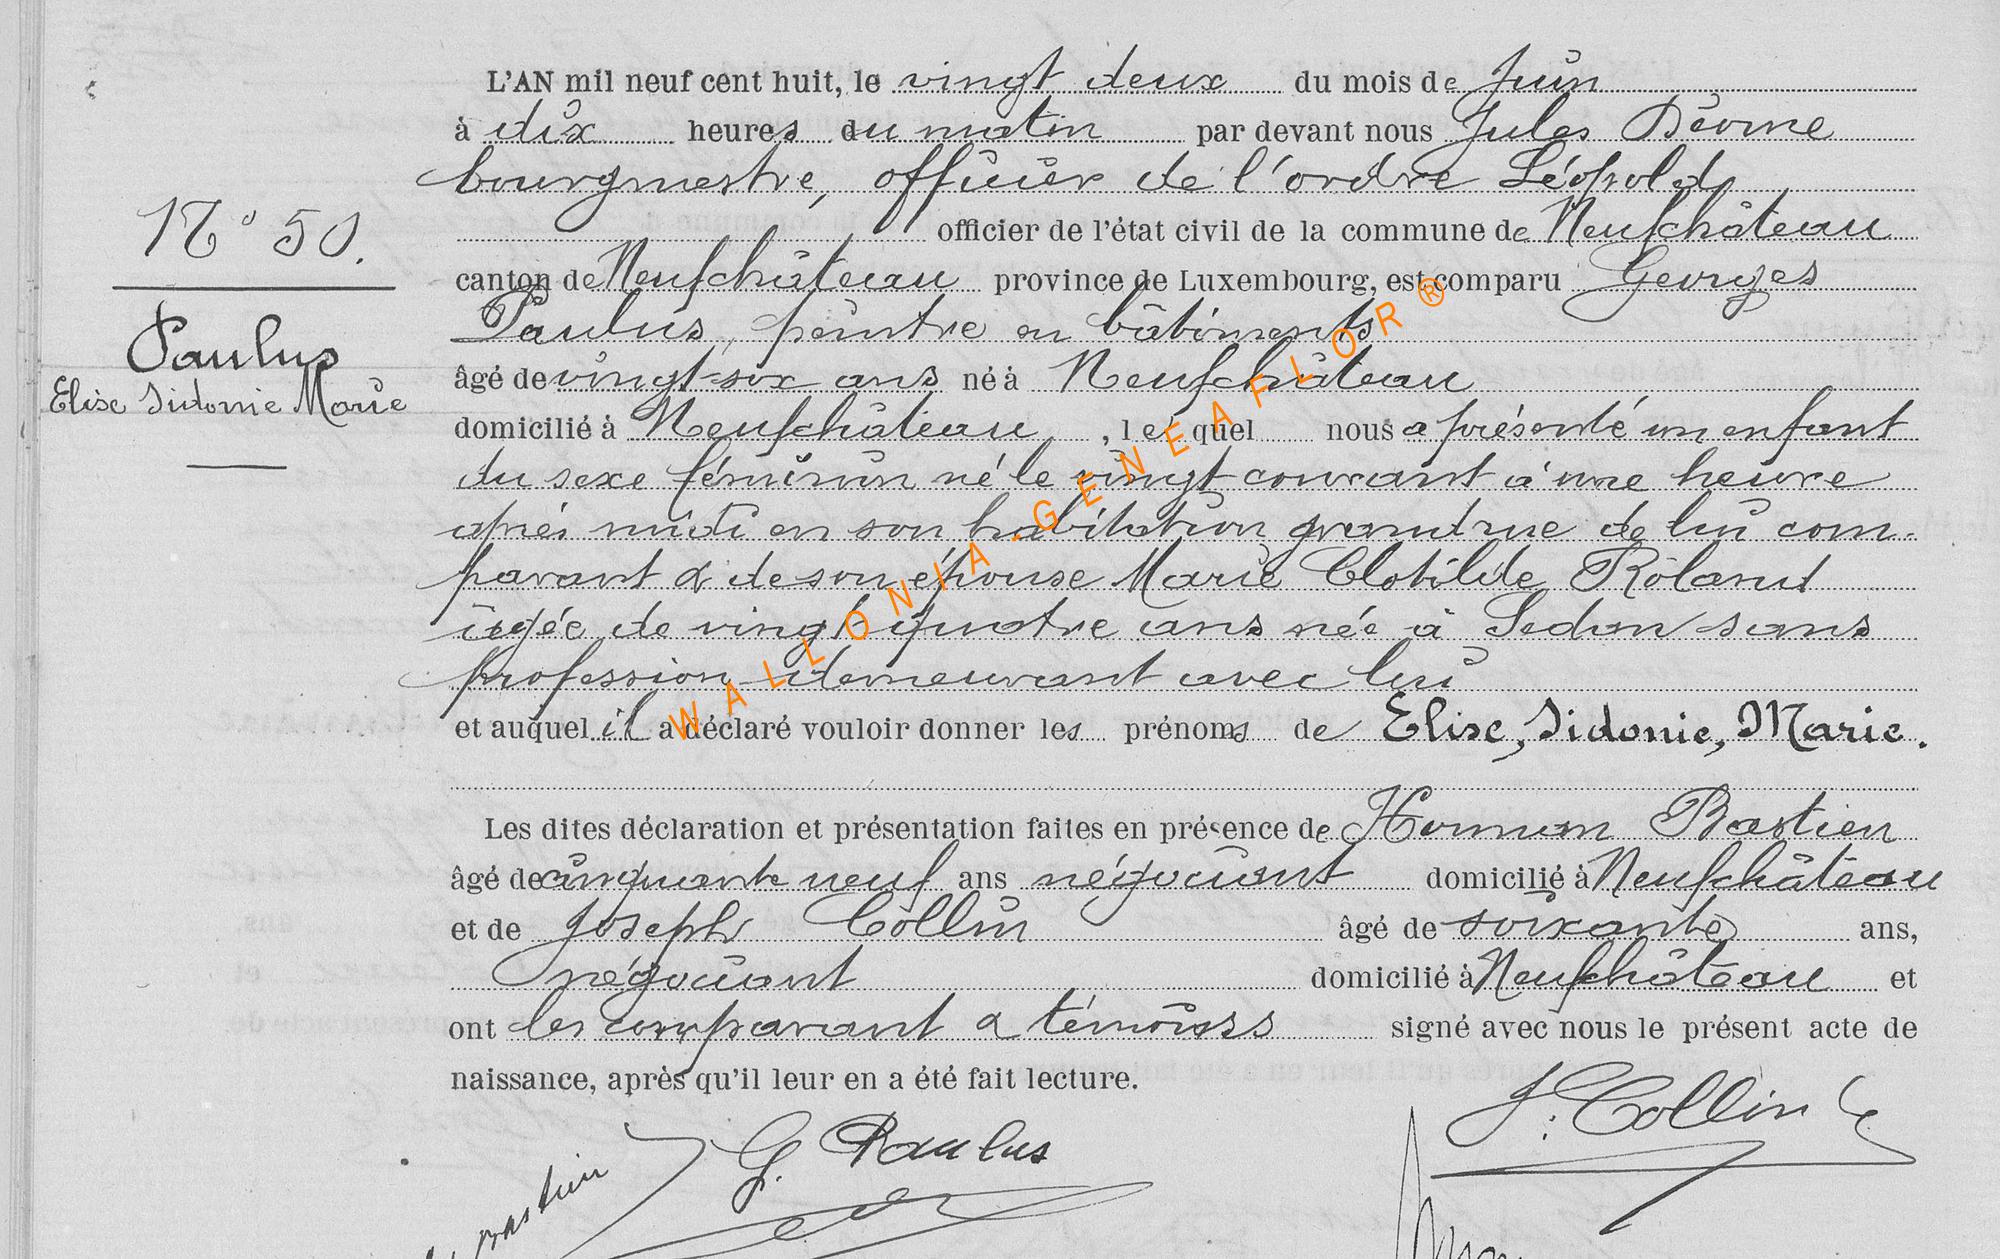 L'AN mil neuf cent huit, le vingt deux du mois de Juin
à dix heures du matin par devant nous Jules
bourgmestre, officier de l'ordre Léopold
officier de l'état civil de la commune de Neufchâteau
canton de Neufchâteau province de Luxembourg, est comparu Georges
Paulus, peintre en bâtiments
âgé de vingt-six ans né à Neufchâteau
domicilié à Neufchâteau, lequel nous a présenté un enfant
du sexe féminin né le vingt courant à une heure
après midi en son habitation grand'rue de lui com-
parant & de son épouse Marie Clotilde Roland
âgée de vingt quatre ans née à Sedan sans
profession demeurant avec lui
et auquel il a déclaré vouloir donner les prénoms de Elise, Sidonie, Marie.
Les dites déclaration et présentation faites en présence de Herman Bastien
âgé de cinquante neuf ans négociant domicilié à Neufchâteau
et de Joseph Collin âgé de soixante ans,
négociant domicilié à Neufchâteau et
ont les comparant & témoins signé avec nous le présent acte de
naissance, après qu'il leur en a été fait lecture.
N° 50.
Paulus
Elise Sidonie Marie
WALLONIA-GENEAFLOR®
J. Collin
G. Paulus
Bastien